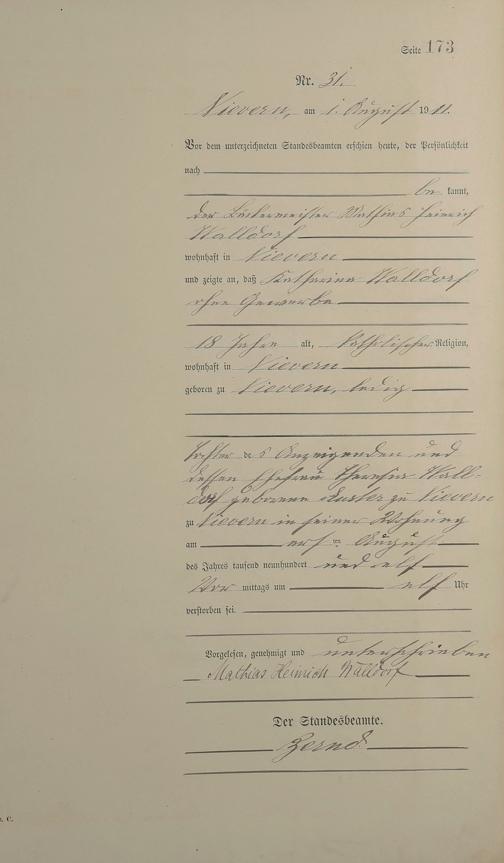 Seite 173
Nr. 31.
Nievern, am 1. August 1911.
Vor dem unterzeichneten Standesbeamten erschien heute, der Persönlichkeit
nach
be kannt,
der Bäckermeister Mathias Heinrich
Walldorf
wohnhaft in Nievern
und zeigte an, daß Katharina Walldorf
ohne Gewerbe
18 Jahre alt, katholischer Religion,
wohnhaft in Nievern
geboren zu Nievern, ledig
Tochter des Anzeigenden und
dessen Ehefrau Theresia Wall-
dorf geborene zu Nievern
zu Nievern in seiner Wohnung
am ersten August
des Jahres tausend neunhundert und elf
Vor mittags um elf Uhr
verstorben sei.
Vorgelesen, genehmigt und unterschrieben
Mathias Heinrich Walldorf
Der Standesbeamte.
Bernd